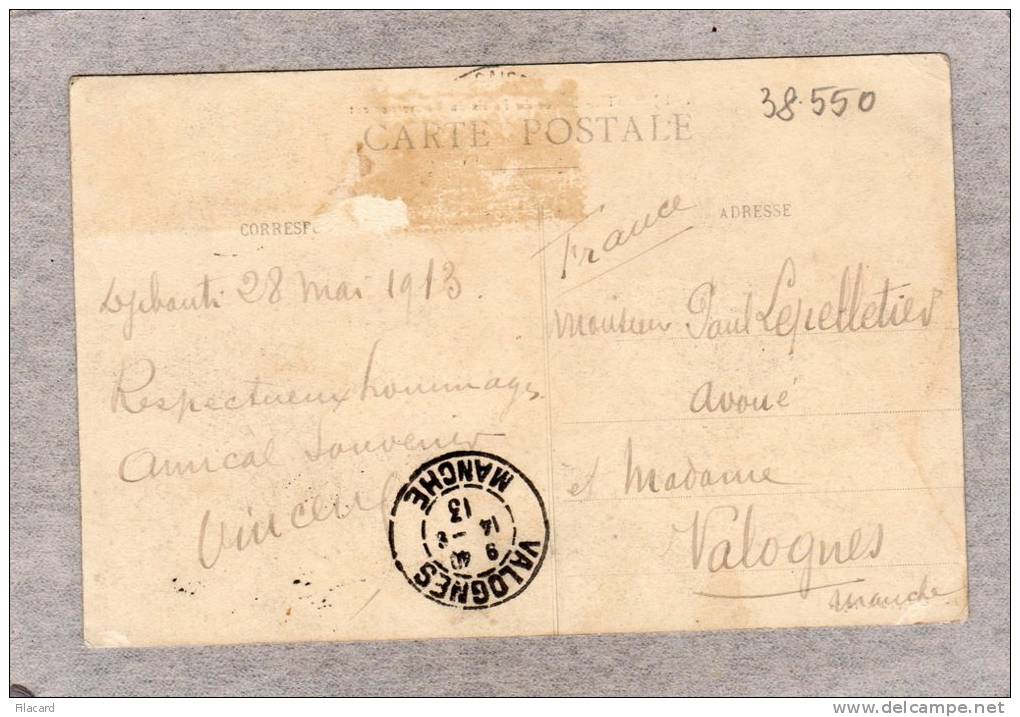 38.550
CARTE POSTALE
CORRESP
ADRESSE
France
Djibouti 28 Mai 1913.
Respectueux hommages
Amical souvenir
Vincent
Monsieur Paul Lepelletier
avoué
et Madame
Valognes
Manche
VALOGNES
9 40
14 - 8
13
MANCHE
Filacard
www.delcampe.net